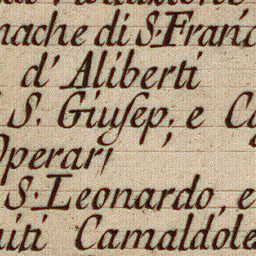 nache di S. Franc
d' Aliberti
S. Giusep. e Ca
Operarj
S. Leonardo, e
uiti Camaldole